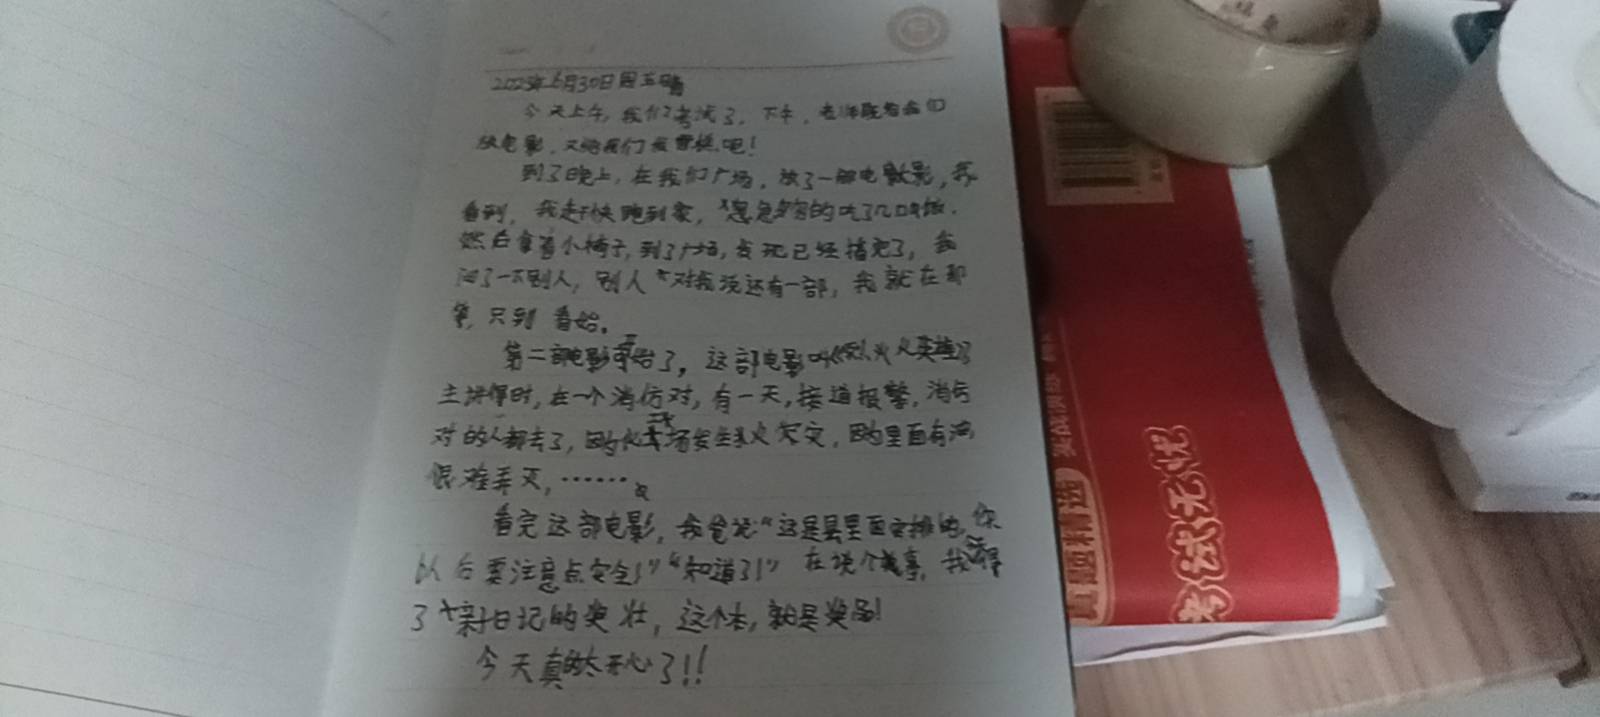 2023年6月30日周五晴
今天上午,我们考试了,下午,老师既给我们
放电影,又给我们发雪糕吧!
到了晚上,在我们广场,放了一部电影,我
看到,我赶快跑到家,急急忙忙的吃了几口饭.
然后拿着小椅子,到了广场,发现已经播完了,我
问了一下别人,别人对我说还有一部,我就在那
等,只到看始。
第二部电影开始了,这部电影叫《烈火英雄》
主讲得时,在一个消仿对,有一天,接道报警,消仿
对的人都去了,因为化工场发生火灾,因为里面有油,
很难弄灭,……。
看完这部电影,我爸说"这是县里面安排的,你
以后要注意点安全!""知道了!"在说个喜事,我得
了新日记的奖壮,这个本,就是奖品!
今天真的太开心了!!
真题精选
实战演练
考试无忧